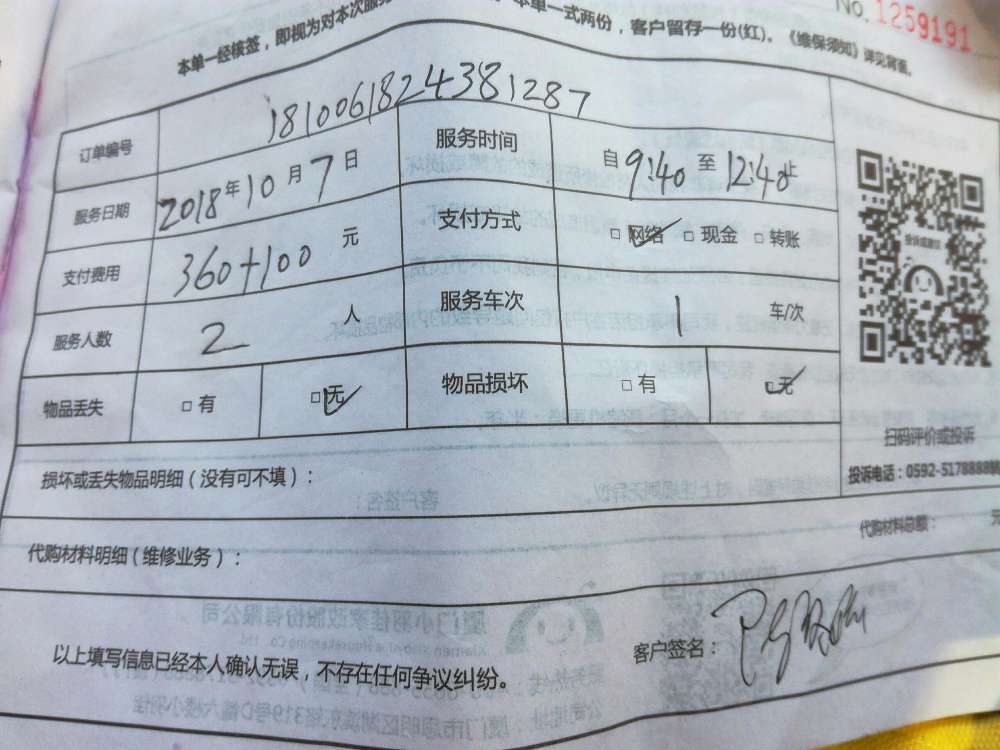 No.1259191
本单一经核签，即视为对本次服务 本单一式两份，客户留存一份(红)。《维保须知》详见背面。
订单编号 1810061824381287
服务日期 2018年10月7日 服务时间 自9:40至12:40止
支付费用 360+100 元 支付方式 □网络 □现金 □转账
服务人数 2 人 服务车次 1 车/次
物品丢失 □有 □无 物品损坏 □有 □无
扫码评价或投诉
投诉电话：0592-5178888
损坏或丢失物品明细（没有可不填）：
代购材料明细（维修业务）： 代购材料总额： 元
以上填写信息已经本人确认无误，不存在任何争议纠纷。 客户签名：